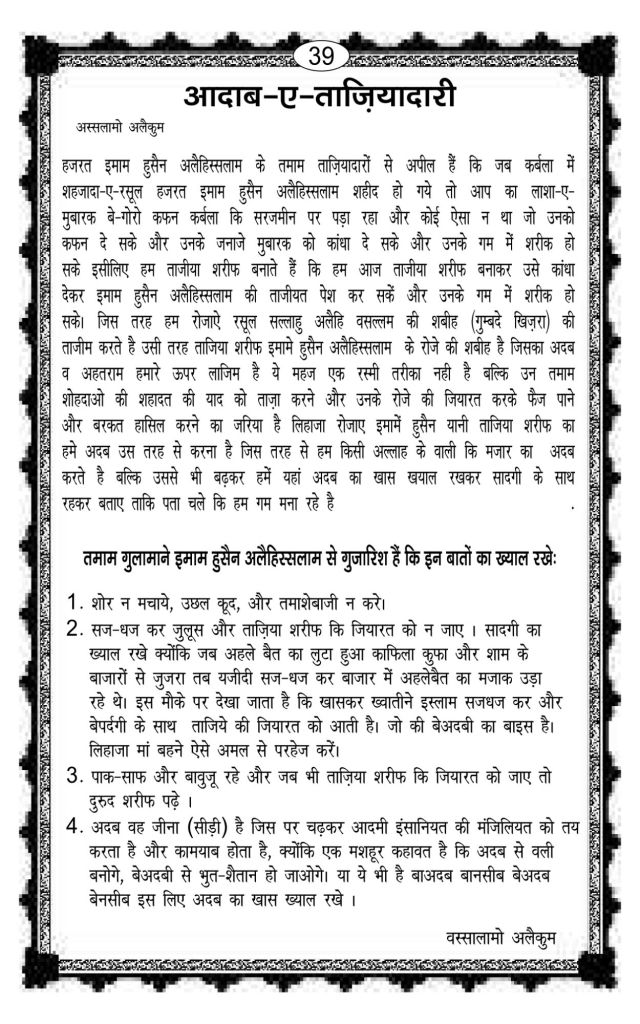 39
आदाब-ए-ताज़ियादारी
अस्सलामो अलैकुम
हजरत इमाम हुसैन अलैहिस्सलाम के तमाम ताज़ियादारों से अपील हैं कि जब कर्बला में
शहजादा-ए-रसूल हजरत इमाम हुसैन अलैहिस्सलाम शहीद हो गये तो आप का लाशा-ए-
मुबारक बे-गोरो कफन कर्बला कि सरजमीन पर पड़ा रहा और कोई ऐसा न था जो उनको
कफन दे सके और उनके जनाजे मुबारक को कांधा दे सके और उनके गम में शरीक हो
सके इसीलिए हम ताजीया शरीफ बनाते हैं कि हम आज ताजीया शरीफ बनाकर उसे कांधा
देकर इमाम हुसैन अलैहिस्सलाम की ताजीयत पेश कर सकें और उनके गम में शरीक हो
सके। जिस तरह हम रोजाऐ रसूल सल्लाहु अलैहि वसल्लम की शबीह (गुम्बदे खिज़रा) की
ताजीम करते है उसी तरह ताजिया शरीफ इमामे हुसैन अलैहिस्सलाम के रोजे की शबीह है जिसका अदब
व अहतराम हमारे ऊपर लाजिम है ये महज एक रस्मी तरीका नही है बल्कि उन तमाम
शोहदाओ की शहादत की याद को ताज़ा करने और उनके रोजे की जियारत करके फैज पाने
और बरकत हासिल करने का जरिया है लिहाजा रोजाए इमामें हुसैन यानी ताजिया शरीफ का
हमे अदब उस तरह से करना है जिस तरह से हम किसी अल्लाह के वाली कि मजार का अदब
करते है बल्कि उससे भी बढ़कर हमें यहां अदब का खास खयाल रखकर सादगी के साथ
रहकर बताए ताकि पता चले कि हम गम मना रहे है .
तमाम गुलामाने इमाम हुसैन अलैहिस्सलाम से गुजारिश हैं कि इन बातों का ख्याल रखेः
1. शोर न मचाये, उछल कूद, और तमाशेबाजी न करे।
2. सज-धज कर जुलूस और ताज़िया शरीफ कि जियारत को न जाए । सादगी का
ख्याल रखे क्योंकि जब अहले बैत का लुटा हुआ काफिला कुफा और शाम के
बाजारों से जुजरा तब यजीदी सज-धज कर बाजार में अहलेबैत का मजाक उड़ा
रहे थे। इस मौके पर देखा जाता है कि खासकर ख्वातीने इस्लाम सजधज कर और
बेपर्दगी के साथ ताजिये की जियारत को आती है। जो की बेअदबी का बाइस है।
लिहाजा मां बहने ऐसे अमल से परहेज करें।
3. पाक-साफ और बावुजू रहे और जब भी ताज़िया शरीफ कि जियारत को जाए तो
दुरुद शरीफ पढ़े ।
4. अदब वह जीना (सीड़ी) है जिस पर चढ़कर आदमी इंसानियत की मंजिलियत को तय
करता है और कामयाब होता है, क्योंकि एक मशहूर कहावत है कि अदब से वली
बनोगे, बेअदबी से भुत-शैतान हो जाओगे। या ये भी है बाअदब बानसीब बेअदब
बेनसीब इस लिए अदब का खास ख्याल रखे ।
वस्सालामो अलैकुम